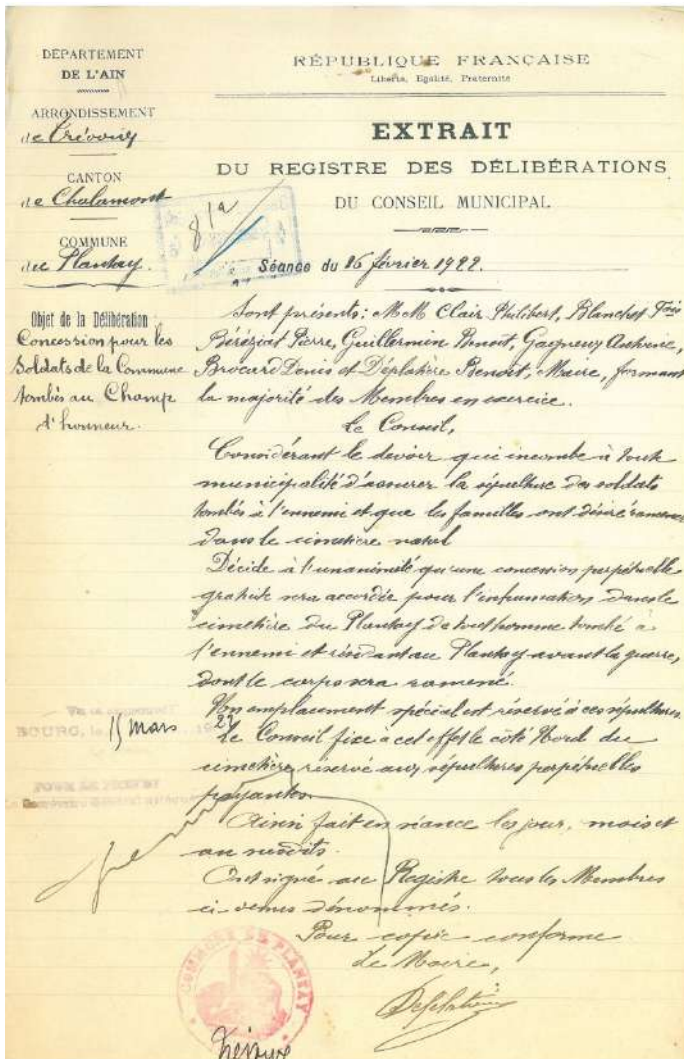 DÉPARTEMENT
DE L'AIN
ARRONDISSEMENT
de Trévoux
CANTON
de Chalamont
COMMUNE
du Plantay.
Objet de la Délibération
Concession pour les
Soldats de la Commune
tombés au Champ
d'honneur.
RÉPUBLIQUE FRANÇAISE
Liberté, Egalité, Fraternité
EXTRAIT
DU REGISTRE DES DÉLIBÉRATIONS
DU CONSEIL MUNICIPAL
Séance du 16 février 1922.
Sont présents: MM Clair Philibert, Blanchet Fois
Béréziat Pierre, Guillermin Benoit, Gagneux Antoine,
Brocard Denis et Déplatière Benoit, Maire, formant
la majorité des Membres en exercice.
Le Conseil,
Considérant le devoir qui incombe à toute
municipalité d'assurer la sépulture des soldats
tombés à l'ennemi et que les familles ont désiré ramener
dans le cimetière natal
Décide à l'unanimité qu'une concession perpétuelle
gratuite sera accordée pour l'inhumation dans le
cimetière du Plantay de tout homme tombé à
l'ennemi et résidant au Plantay avant la guerre,
dont le corps sera ramené.
Un emplacement spécial est réservé à ces sépultures.
Le Conseil fixe à cet effet le côté Nord du
cimetière réservé aux sépultures perpétuelles
payantes.
Ainsi fait en séance les jour, mois et
an susdits.
Ont signé au Registre tous les Membres
ci-dessus dénommés.
Pour copie conforme
Le Maire,
BOURG, le 15 mars 22
POUR LE PRÉFET
COMMUNE DE PLANTAY